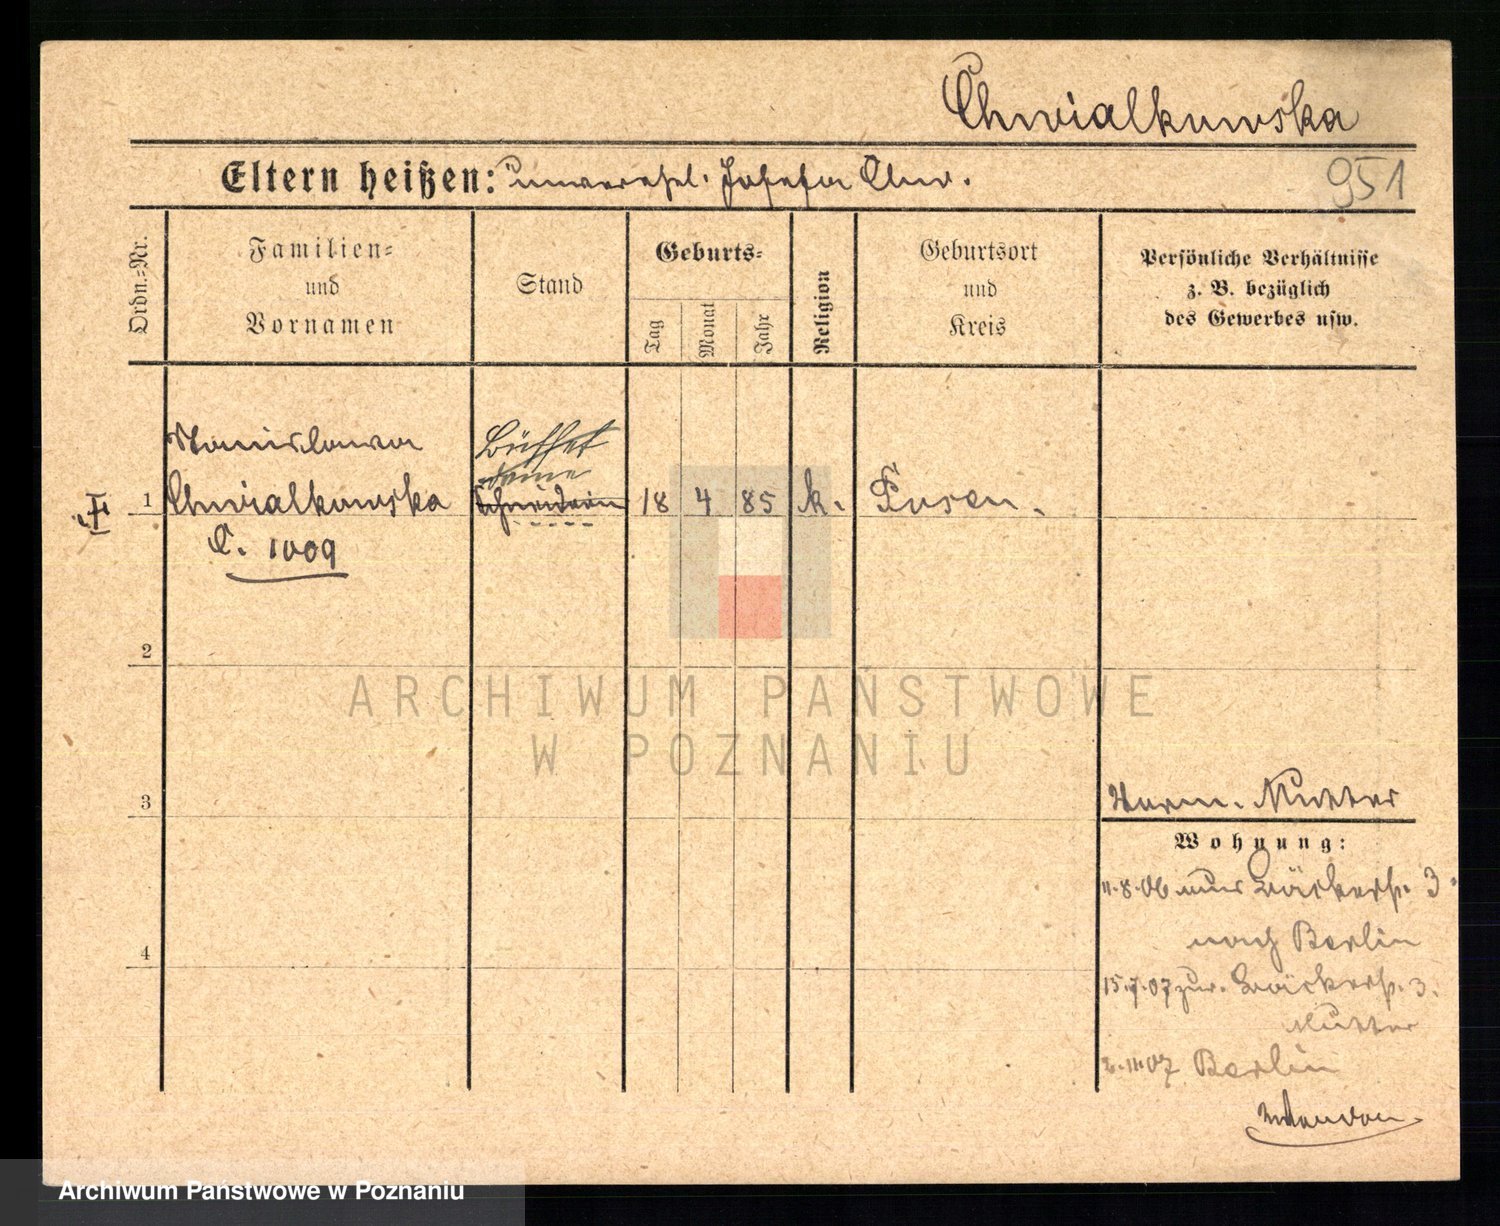 Chwialkowska
Eltern heißen: unverehel. Josefa Chw.
951
Ordn.=Nr.
Familien=
und
Vornamen
Stand
Geburts=
Tag
Monat
Jahr
Religion
Geburtsort
und
Kreis
Persönliche Verhältnisse
z. B. bezüglich
des Gewerbes usw.
Stanislawa
Büffet
1 Chwialkowska Schneiderin 18 4 85 k. Posen.
C. 1009
2
ARCHIWUM PAŃSTWOWE
W POZNANIU
3
Mutter
Wohnung:
11.8.06 3.
nach Berlin
4
15.7.07 zur. Bäckerstr. 3.
Mutter
2.11.07 Berlin
Archiwum Państwowe w Poznaniu